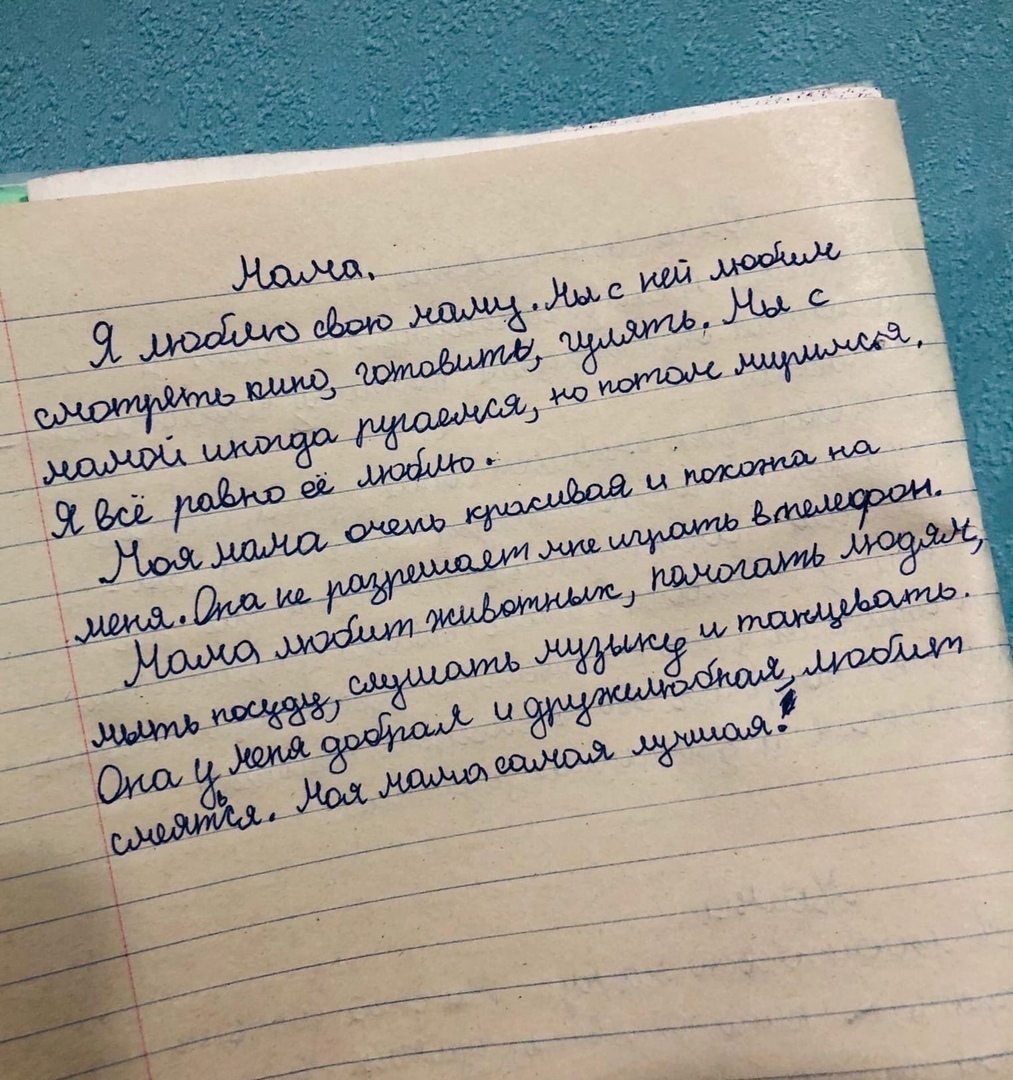 Мама.
Я люблю свою маму. Мы с ней любим
смотреть кино, готовить, гулять. Мы с
мамой иногда ругаемся, но потом миримся.
Я всё равно её люблю.
Моя мама очень красивая и похожа на
меня. Она не разрешает мне играть в телефон.
Мама любит животных, помогать людям,
мыть посуду, слушать музыку и танцевать.
Она у меня добрая и дружелюбная, любит
смеяться. Моя мама самая лучшая!